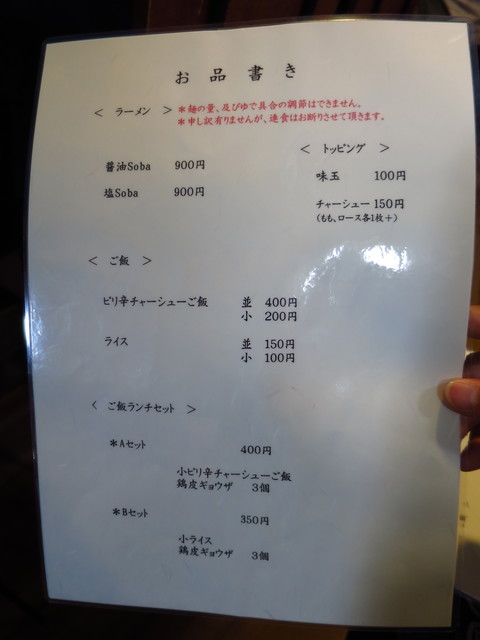 お品書き
< ラーメン > *麺の量、及びゆで具合の調節はできません。
*申し訳有りませんが、連食はお断りさせて頂きます。
醤油Soba 900円
塩Soba 900円
< トッピング >
味玉 100円
チャーシュー 150円
(もも、ロース各1枚+)
< ご飯 >
ピリ辛チャーシューご飯 並 400円
小 200円
ライス 並 150円
小 100円
< ご飯ランチセット >
*Aセット 400円
小ピリ辛チャーシューご飯
鶏皮ギョウザ 3個
*Bセット 350円
小ライス
鶏皮ギョウザ 3個